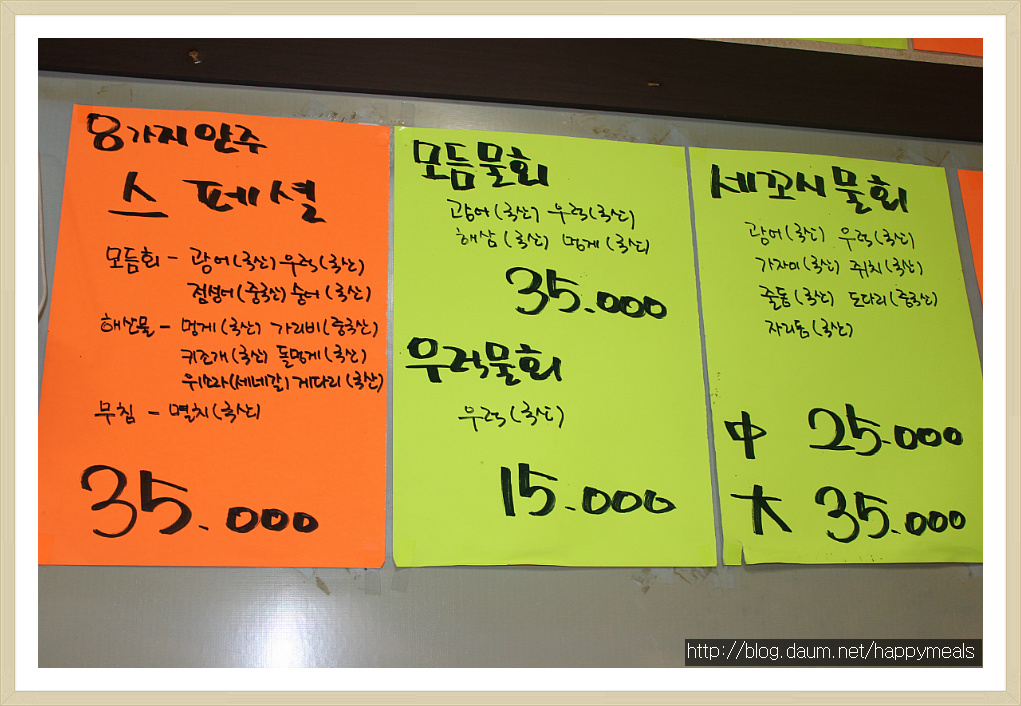 8가지안주
스페셜
모듬회 - 광어(국산) 우럭(국산)
점성어(중국산) 숭어(국산)
해산물 - 멍게(국산) 가리비(중국산)
키조개(국산) 돌멍게(국산)
위소라(세네갈) 게다리(국산)
무침 - 멸치(국산)
35.000
모듬물회
광어(국산) 우럭(국산)
해삼(국산) 멍게(국산)
35.000
우럭물회
우럭(국산)
15.000
세꼬시물회
광어(국산) 우럭(국산)
가자미(국산) 쥐치(국산)
줄돔(국산) 도다리(중국산)
자리돔(국산)
中 25.000
大 35.000
http://blog.daum.net/happymeals